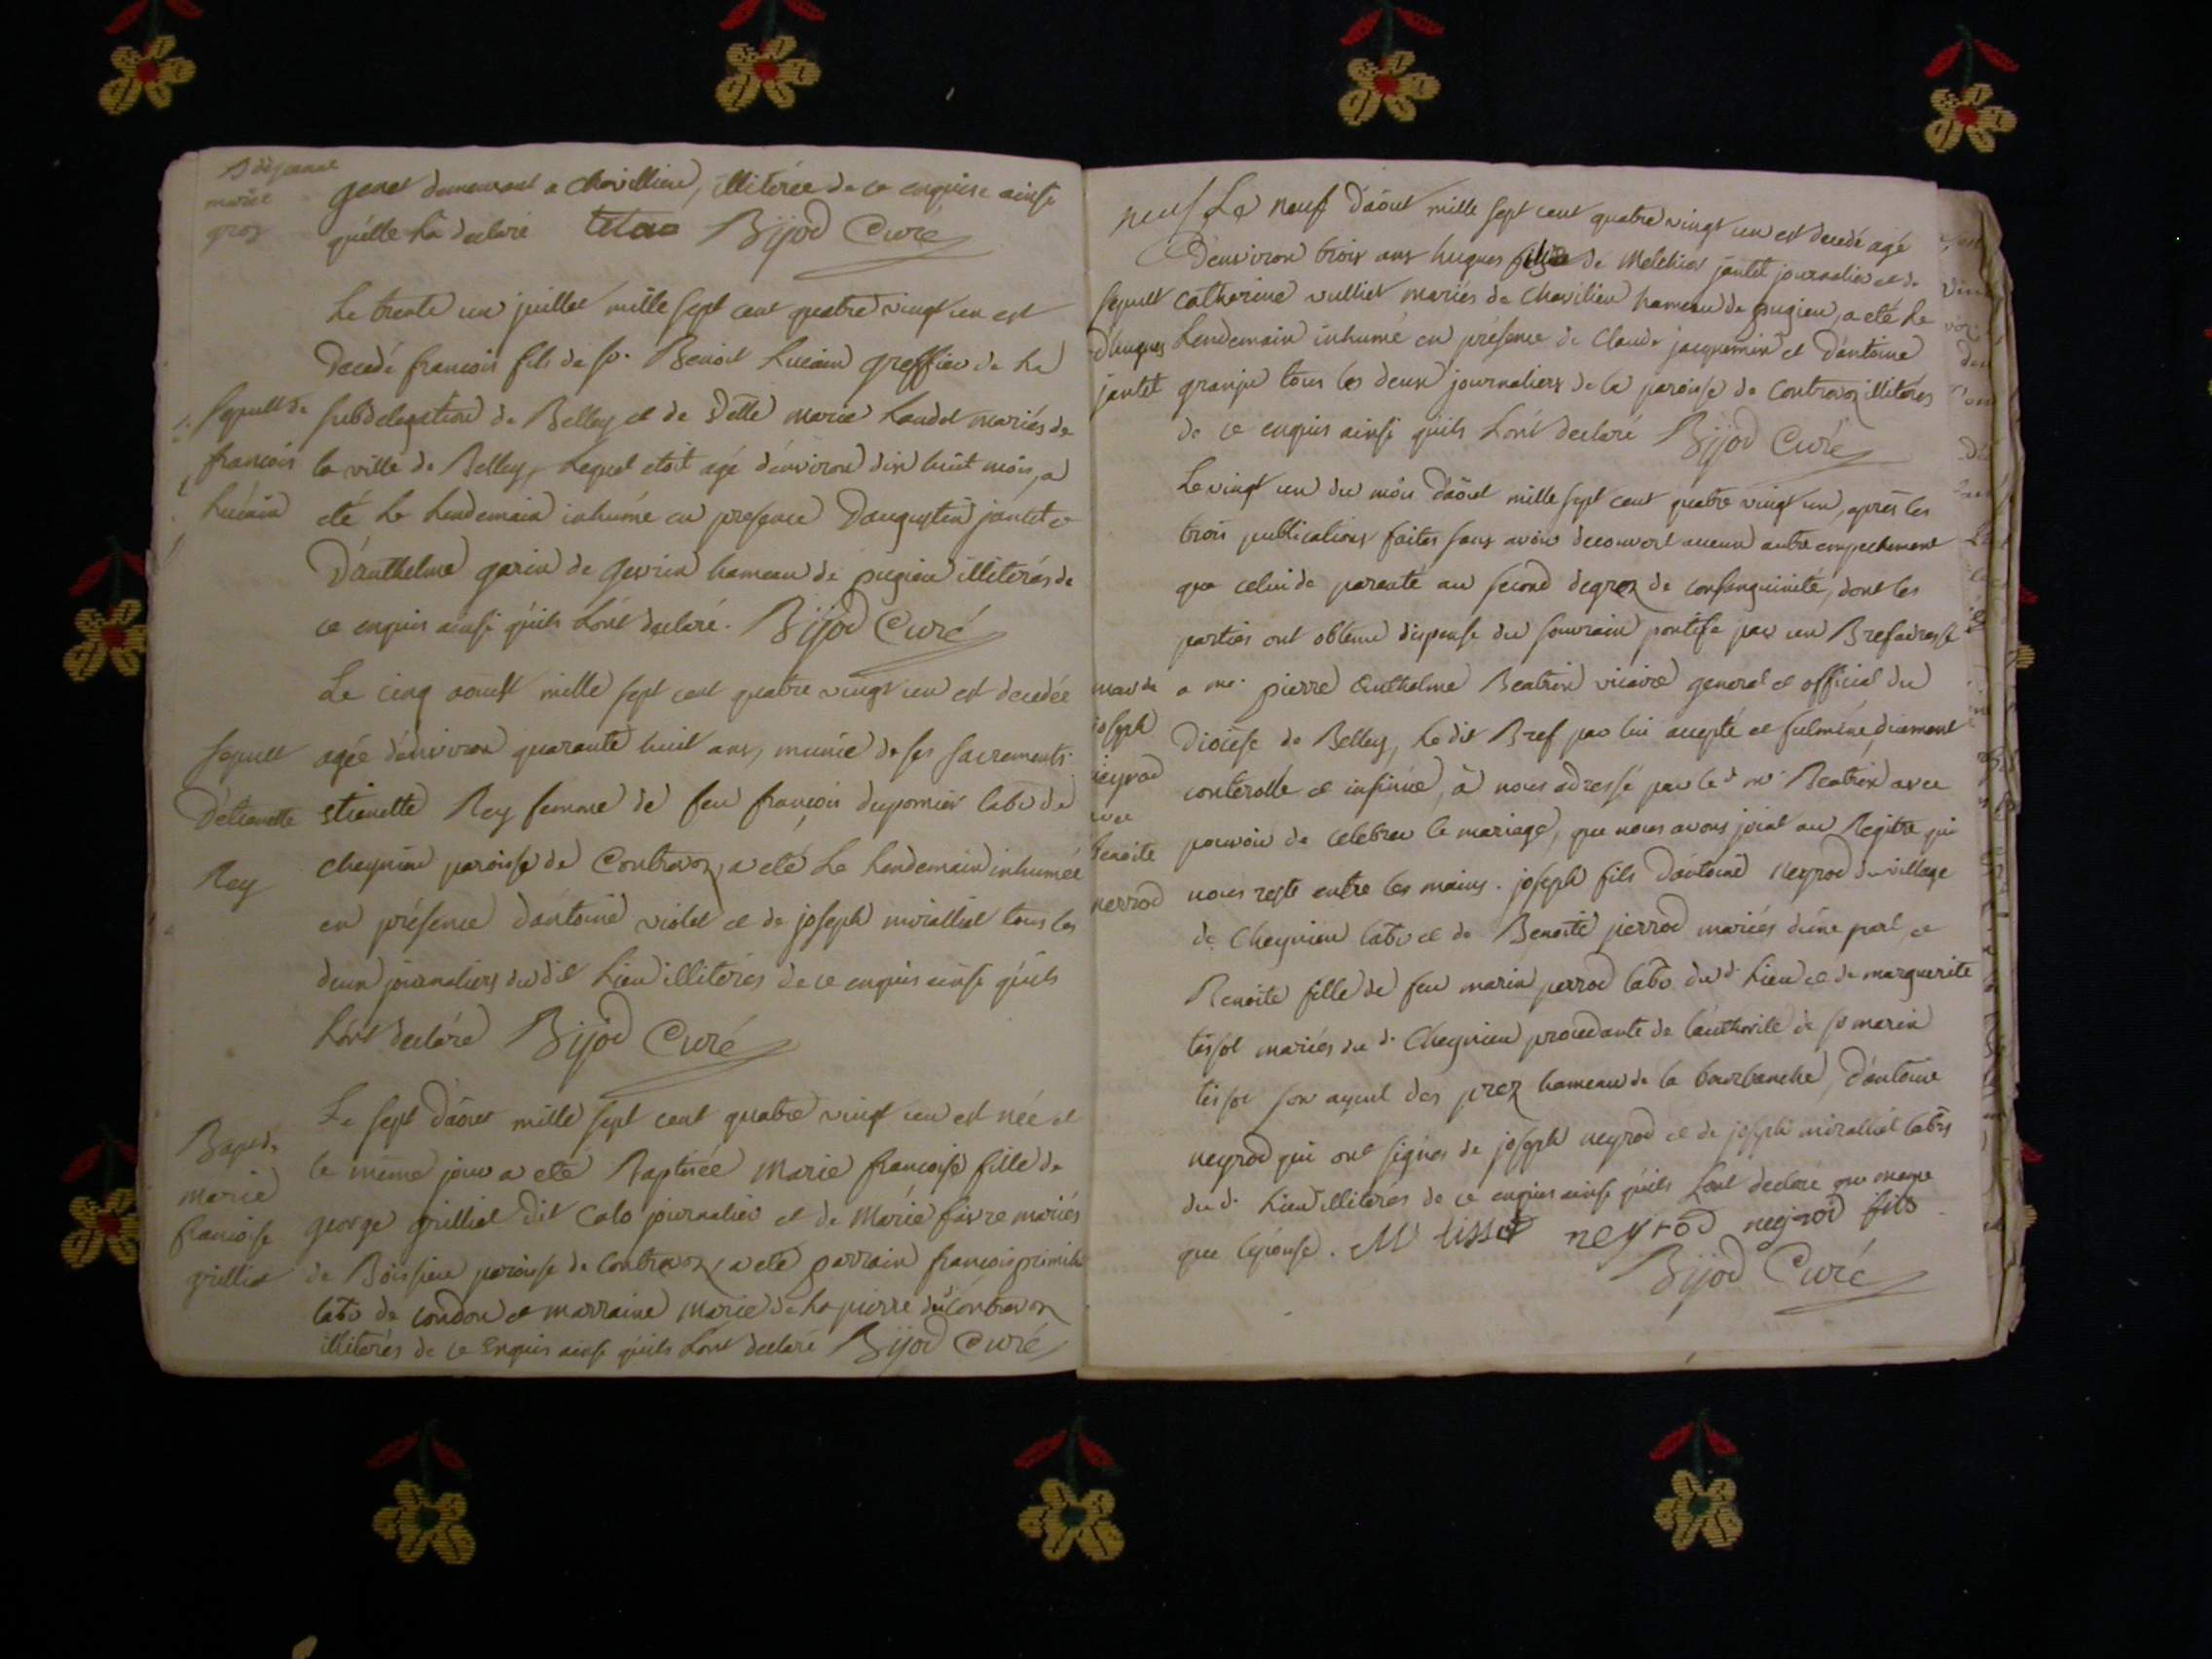 B de jeanne
marie
groz
genet demeurant a Chavillieu, illiterée de ce enquise ainsi
qu'elle l'a declaré Bijod Curé
Le trente un juillet mille sept cent quatre vingt un est
decedé françois fils de sr. Benoit Lucain greffier de la
Sepult de
françois
Lucain
subdelegation de Belley et de Delle marie Laudet mariés de
la ville de Belley, lequel etoit agé d'environ dix huit mois, a
eté le lendemain inhumé en presence D'augustin jantet et
D'anthelme garin de gevrin hameau de pugieu illiterés de
ce enquis ainsi qu'ils L'ont declaré. Bijod Curé
Le cinq aoust mille sept cent quatre vingt un est decedée
Sepult
D'etienette
Rey
agée d'environ quarante huit ans, munie de ses sacrements
etienette Rey femme de feu françois dupomier labr de
cheynieu paroisse de Contrevoz, a eté Le Lendemain inhumée
en présence d'antoine violet et de joseph miralliet tous les
deux journaliers du dit Lieu illiterés de ce enquis ainsi qu'ils
L'ont declaré Bijod Curé
Bapt de
marie
françoise
grilliet
Le sept D'aout mille sept cent quatre vingt un est née et
le même jour a eté Baptisée Marie françoise fille de
george grilliet dit Calo journalier et de Marie faivre mariés
de Boissieu paroisse de Contrevoz, a eté parrain françois
labr de condon et marraine marie de La pierre du Contrevoz
illiterés de ce enquis ainsi qu'ils L'ont declaré Bijod Curé
neuf Le neuf D'aout mille sept cent quatre vingt un est decedé agé
D'environ trois ans hugues fils de Melchior jantet journalier et de
Sepult
D'hugues
jantet
catherine vulliet mariés de Chavilieu hameau de pugieu, a eté Le
Lendemain inhumé en présence de Claude jacquemin et D'antoine
granju tous les deux journaliers de la paroisse de Contrevoz illiterés
de ce enquis ainsi qu'ils L'ont declaré Bijod Curé
Le vingt un du mois D'aout mille sept cent quatre vingt un, après les
trois publications faites sans avoir decouvert aucun autre empechement
que celui de parenté au second degrez de consanguinité, dont les
parties ont obtenu dispense du souverain pontife par un Bref adressé
mar de
joseph
neyrod
avec
benoite
perrod
a me. pierre Anthelme Beatrix vicaire general et official du
Diocèse de Belley, Le dit Bref par lui accepté et fulminé, duement
controllé et insinué, à nous adressé par le d. mr Beatrix avec
pouvoir de celebrer le mariage, que nous avons joint au Registre qui
nous reste entre les mains. joseph fils D'antoine neyrod du village
de Cheynieu labr et de Benoite perrod mariés d'une part, et
Benoite fille de feu marin perrod labr du d. Lieu et de marguerite
tissot mariés du d. Cheynieu procedante de l'authorité de sr marin
tissot son ayeul des prez hameau de la burbanche, D'antoine
neyrod qui ont signés de joseph neyrod et de joseph miralliet labrs
du d. Lieu illiterés de ce enquis ainsi qu'ils L'ont declaré que meme
que l'epouse. M tissot neyrod neyrod fils
Bijod Curé